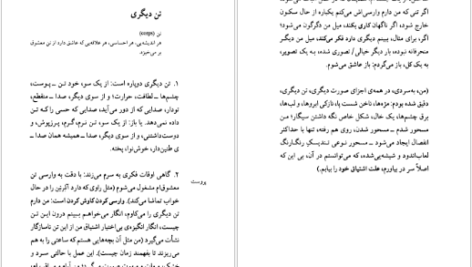 تن دیگری
تن (corps)
هر اندیشه‌یی، هر احساسی، هر علاقه‌یی که عاشق دارد از تن معشوق
بر می‌خیزد.
۱. تن دیگری دوپاره است: از یک سو، خود تن ــ پوست،
چشم‌ها ــ لطافت، حرارت؛ و از سوی دیگر، صدا ــ منقطع،
تودار، صدایی که از دور می‌آید، صدایی که حسی را که تن
داده نمی‌دهد. یا باز: از یک سو، تن نرم، گرم، پرزپوش، و
دوست‌داشتنی، و از سوی دیگر، صدا ــ همیشه همان صدا ــ
ی طنین‌دار، خوش‌نوا، پخته.
پروست
۲. گاهی اوقات فکری به سرم می‌زند: با دقت به وارسی تن
معشوق‌ام مشغول می‌شوم (مثل راوی که دارد آلبرتین را در حال
خواب تماشا می‌کند). وارسی کردن کاوش کردن است: من دارم
تن دیگری را می‌کاوم، انگار می‌خواهم ببینم درون این تن
چیست، انگار انگیزه‌ی بی‌اختیار اشتیاق من از این تن ناسازگار
نشأت می‌گیرد (من مثل آن بچه‌هایی هستم که ساعتی را به هم
می‌زنند تا بفهمند زمان چیست). این عمل با حالتی سرد و
اگر تنی که من دارم وارسی‌اش می‌کنم یکباره از حال سکون
خارج شود، اگر ناگهان کاری بکند، میل من دگرگون می‌شود؛
اگر، برای مثال، ببینم دیگری دارد فکر می‌کند، میل من دیگر
منحرفانه نبوده، بار دیگر خیالی / تصوری شده، به یک تصویر،
به یک کل، باز می‌گردم: باز عاشق می‌شوم.
(من، به‌سردی، در همه‌ی اجزای صورت دیگری، تن دیگری،
دقیق شده بودم: مژه‌ها، ناخن شست پا، نازکی ابروها، و لب‌ها،
برق چشم‌ها، یک خال، شکل خاص نگه داشتن سیگار؛ من
مسحور شدم ــ مسحور شدن، روی هم رفته، تنها با حداکثر
انفصال ایجاد می‌شود ــ مسحور نوعی تندیسک رنگارنگ
لعاب‌اندود و شیشه‌یی‌شده، که می‌توانستم در آن، بی این که
اصلاً سر در بیاورم، علت اشتیاق خود را بیابم.)